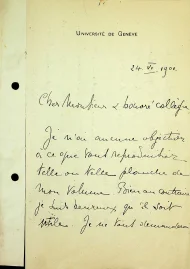 UNIVERSITÉ DE GENÈVE
24. VI. 1900
Cher Monsieur & honoré collègue
Je n'ai aucune objection
à ce que vous reproduisiez
telle ou telle planche de
mon volume. Bien au contraire
je suis heureux qu'il soit
utile. Je ne vous demanderai